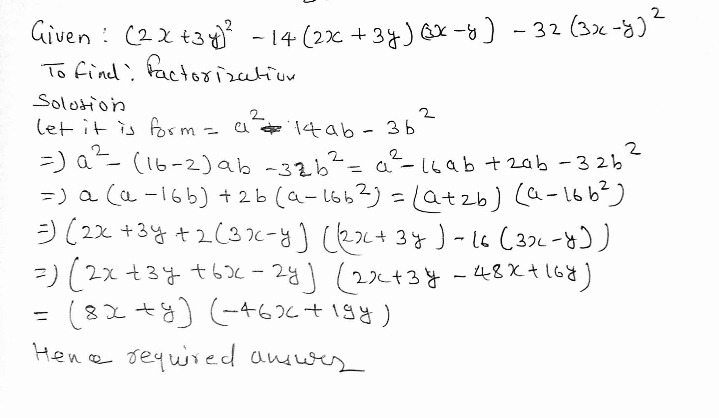 Given : (2x+3y)² - 14(2x+3y)(3x-y) - 32(3x-y)²
To find : factorization
Solution
let it is form = a² - 14ab - 3b²
=) a² - (16-2)ab - 32b² = a² - 16ab + 2ab - 32b²
=) a(a-16b) + 2b(a-16b²) = (a+2b)(a-16b²)
=) (2x+3y+2(3x-y) ((2x+3y)-16(3x-y))
=) (2x+3y+6x-2y) (2x+3y-48x+16y)
= (8x+y) (-46x+19y)
Hence required answer